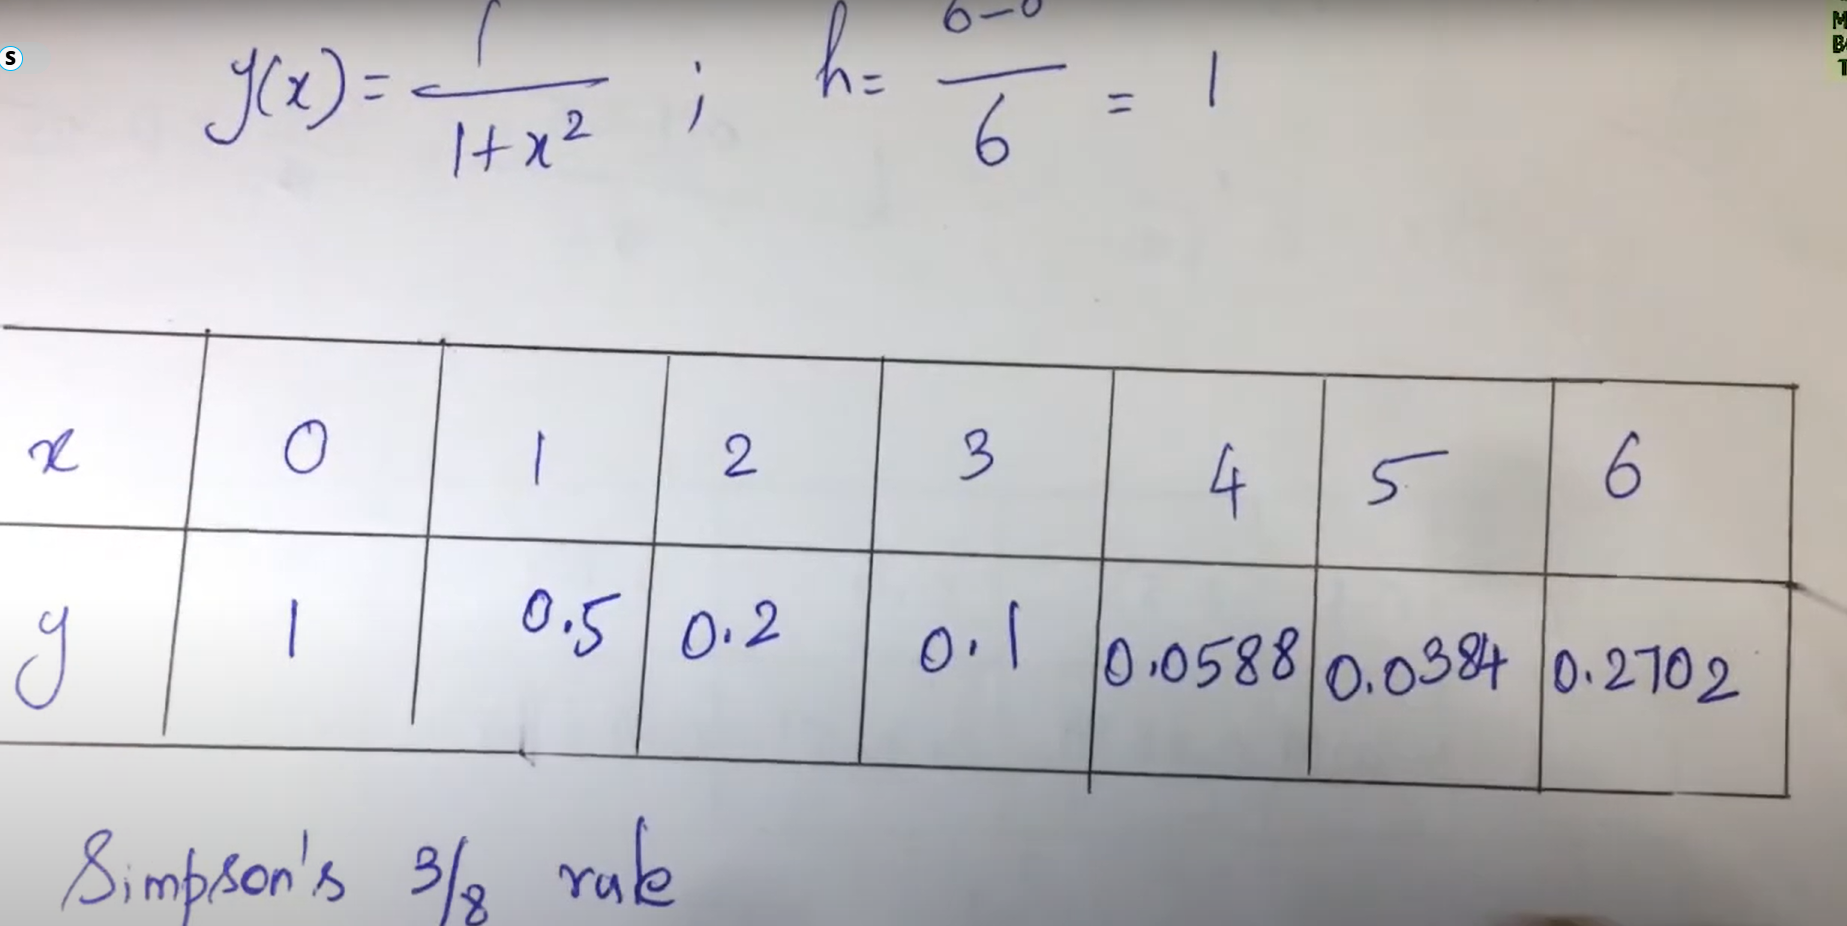 y(x) = 1/(1+x²) ; h = (6-0)/6 = 1
x 0 1 2 3 4 5 6
y 1 0.5 0.2 0.1 0.0588 0.0384 0.2702
Simpson's 3/8 rule
S